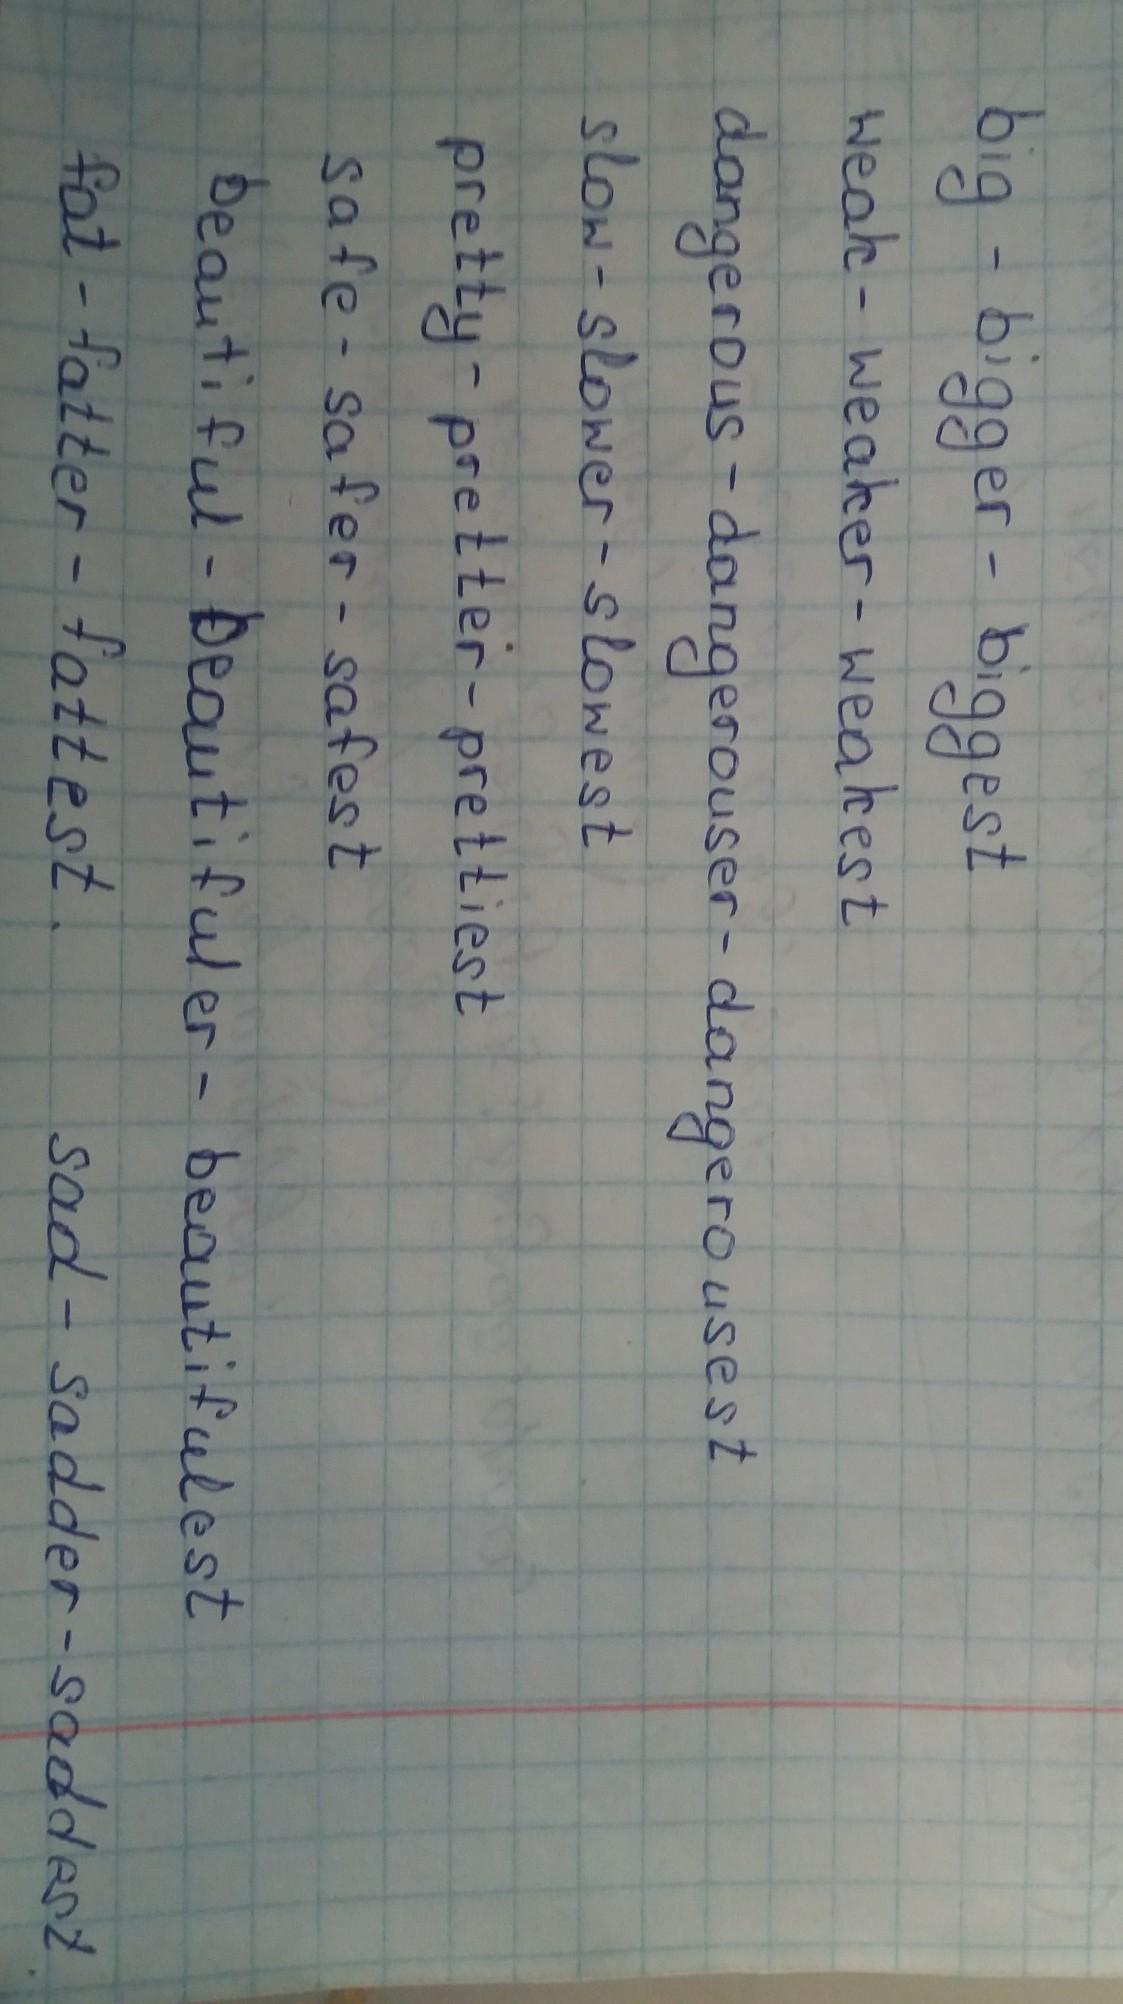 big - bigger - biggest
weak - weaker - weakest
dangerous - dangerouser - dangerousest
slow - slower - slowest
pretty - prettier - prettiest
safe - safer - safest
beautiful - beautifuler - beautifulest
fat - fatter - fattest. sad - sadder - saddest.